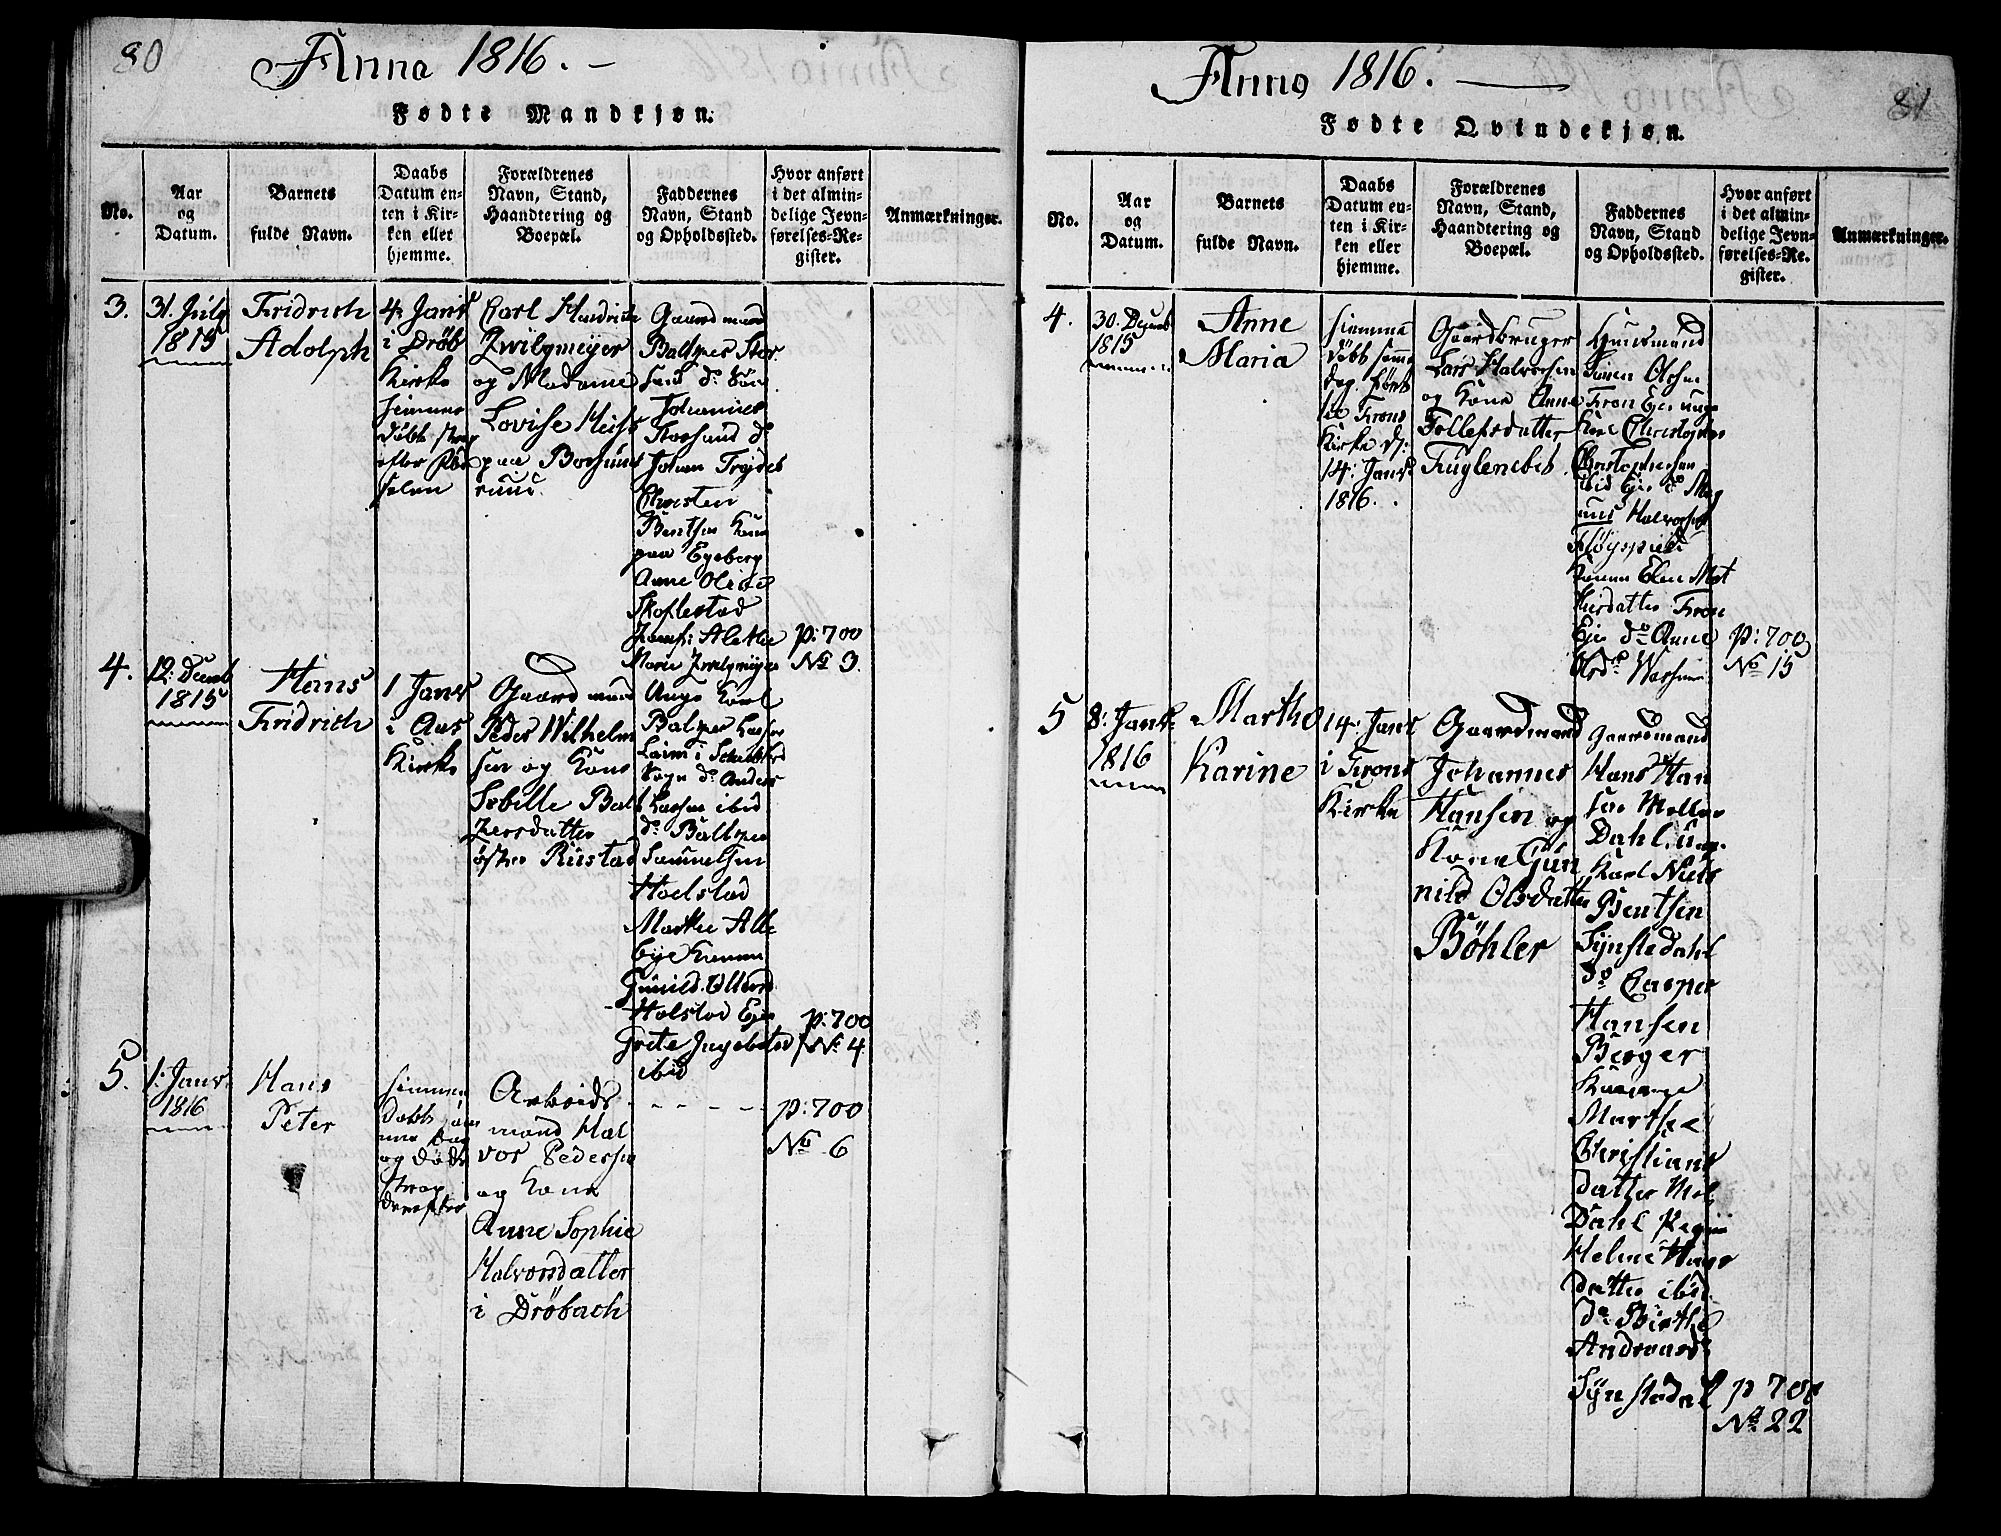 80
Anno 1816. –
Fødte Mandkjøn.
No.
Aar
og
Datum.
Barnets
fulde Navn.
Daabs
Datum en-
ten i Kir-
ken eller
hjemme.
Forældrenes
Navn, Stand,
Haandtering og
Boepæl.
Faddernes
Navn, Stand
og Opholdssted.
Hvor anført
i det almin-
delige Jevn-
førelses-Re-
gister.
Anmærkninger.
3.
31. July
1815
Fridrich
Adolph
4. Janr
i Drøb
Kirke
hiemme
døbt strax
efter Fød
selen
Carl
Zwilgmeyer
og Madame
Lovise
paa
Gaardmand
Baltzer Stor
sand do
Johannes
Storsand do
Johan
Christen
Bentsen
paa Egeberg
Anne
Skoflestad
Jomfr: Alethe
Marie Zwilgmeyer
p: 700
No 3.
4.
12. Decemb
1815
Hans
Fridrich
1 Janr
i Aas
Kirke
Gaardmand
Peder Wilhelm
sen og Kone
Sebille Bal
zersdatter
østre Rustad
Unge Karl
Baltzer
Sogn do Anders
Larsen ibid
do Baltzer
Samuelsen
Holstad
Marthe
Gunild
Holstad Eje
Grete Ingebretsd
ibid
p: 700
No 4
5.
1. Janr.
1816
Hans
Peter
hiemme
døbt sam
me Dag
og døde
strax
derefter
Arbeids
mand Hal
vor Pedersen
og Kone
Anne Sophie
Halvorsdatter
i Drøbach
– – – – –
p: 700
No 6
81
Anno 1816. —
Fødte Qvindekjøn.
No.
Aar
og
Datum.
Barnets
fulde Navn.
Daabs
Datum en-
ten i Kir-
ken eller
hjemme.
Forældrenes
Navn, Stand,
Haandtering og
Boepæl.
Faddernes
Navn, Stand
og Opholdssted.
Hvor anført
i det almin-
delige Jevn-
førelses-Re-
gister.
Anmærkninger.
4.
30. Decemb
1815
Anne
Maria
hiemme
døbt samme
Dag
Krons
Kirke d:
14: Janr
1816.
Gaardbruger
Lars Halvorsen
og Kone Anne
Tollefsdatter
Fuglenebet
Huusmand
Olsen
Kron Eje unge
Karl
Christophersen
ibid Eje do Mag
nus Halvorsen
Fløyspiet
Konen Elen Mat
hisdatter Kron
Eje do Anne
p: 700
No 15
5
8: Janr.
1816
Marthe
Karine
14: Janr
i Krons
Kirke
Gaardmand
Johannes
Hansen og
Kone Gun
nild Olsdatter
Bøhler
Gaardmand
Hans Han
sen Mellem
Dahl. Ung.
Karl Niels
Bentsen
Synstedahl
do Casper
Hansen
Berger
Marthe
Christians
datter Mel.
Dahl Pigen
Helene Hans
datter ibid
do Birthe
Andreasd
Synstedal
p 700
No 22